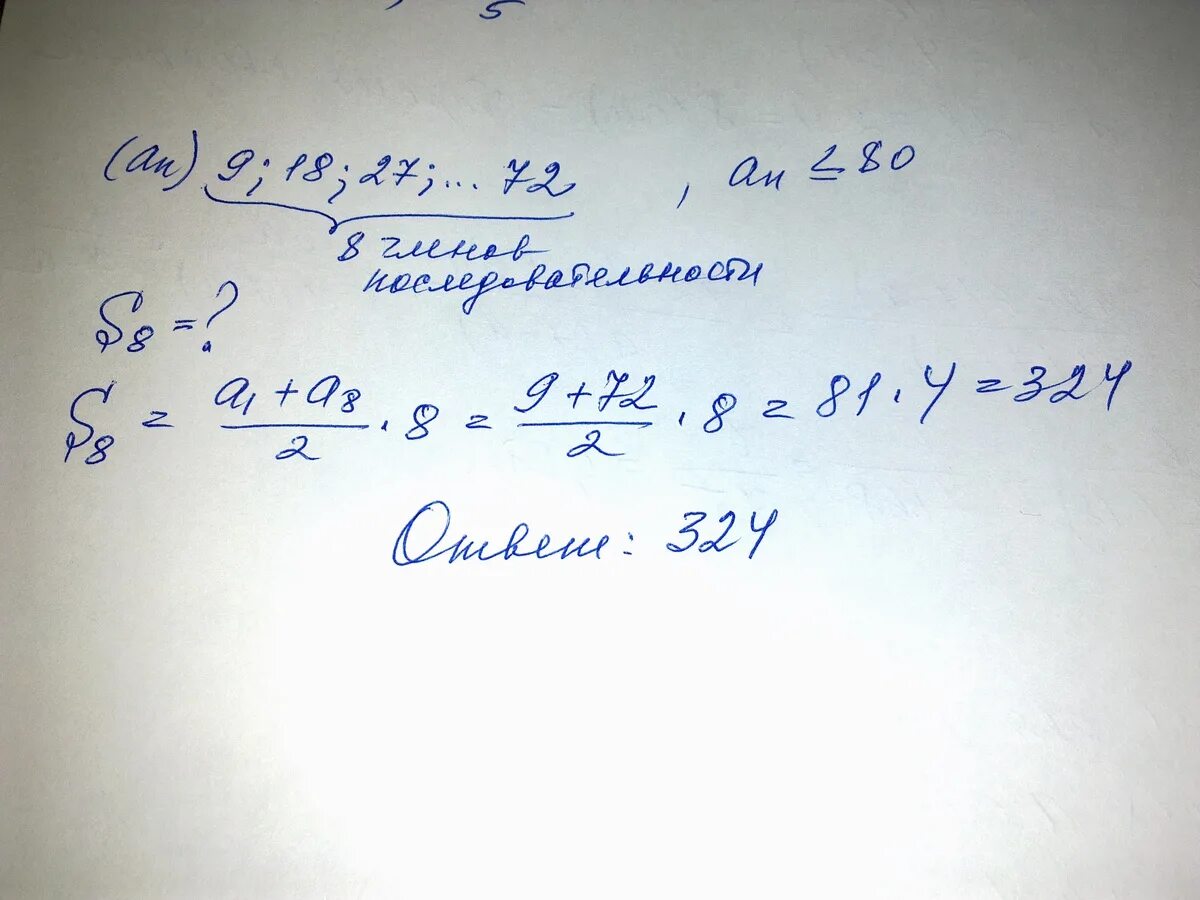 5
(an) 9; 18; 27; ... 72 , an ≤ 80
8 членов
последовательности
S8 = ?
S8 = (a1 + a8)/2 · 8 = (9 + 72)/2 · 8 = 81 · 4 = 324
Ответ: 324